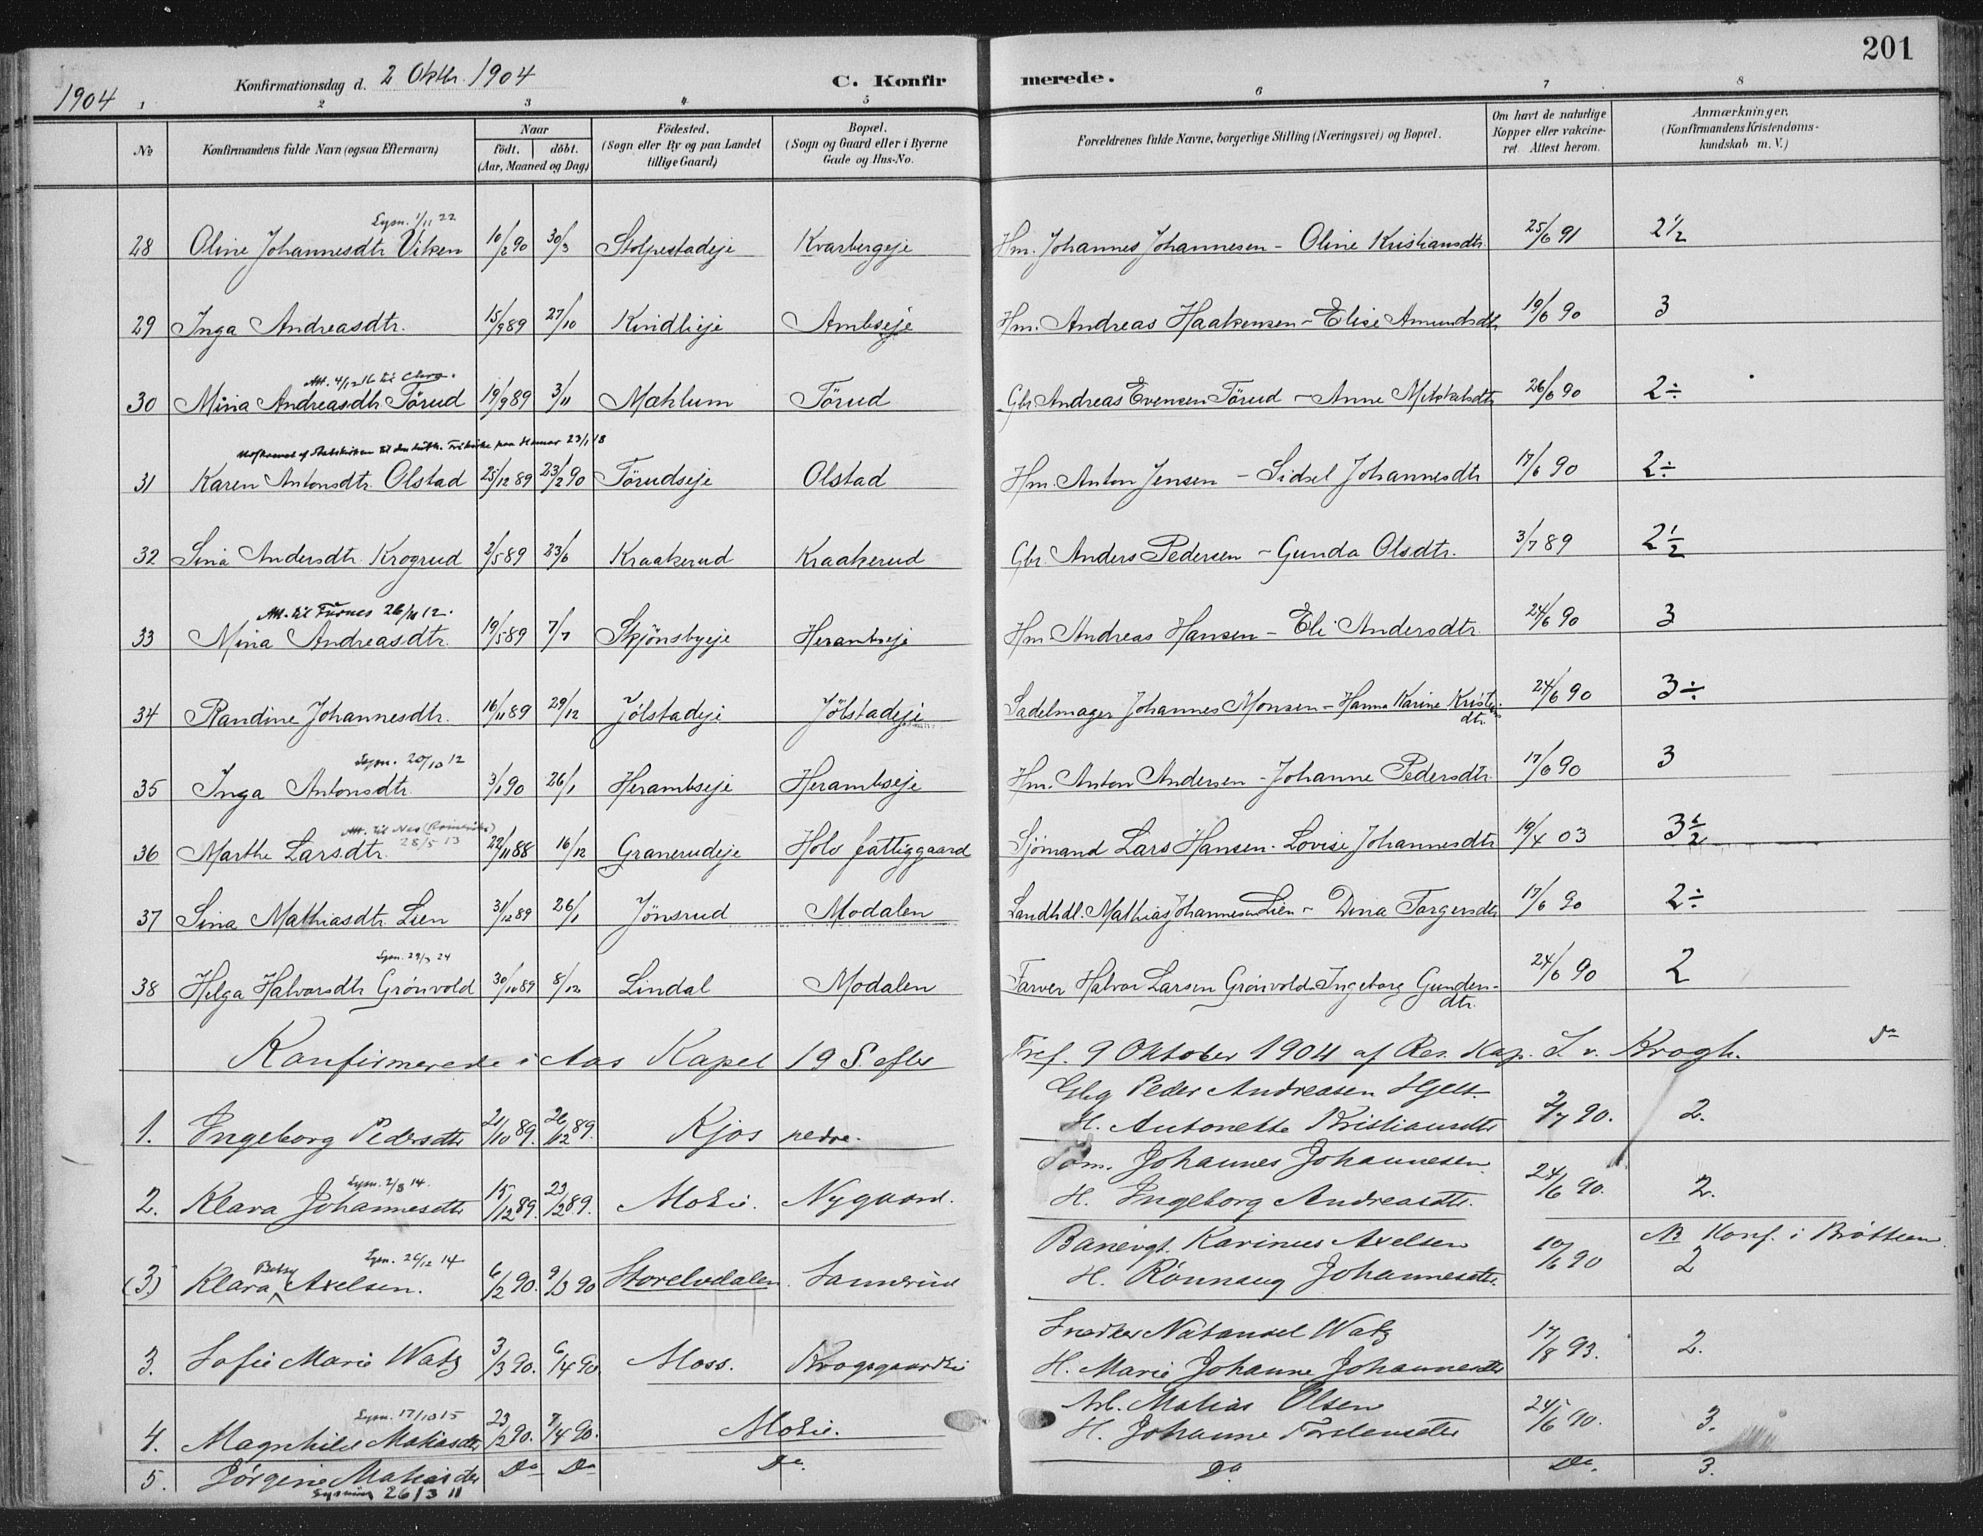 201
1904
Konfirmationsdag d. 2 Oktbr. 1904
C. Konfirmerede.
1 2 3 4 5 6 7 8
No
Konfirmandens fulde Navn (ogsaa Efternavn)
Naar
födt. döbt.
(Aar, Maaned og Dag)
Födested.
(Sogn eller By og paa Landet
tillige Gaard)
Bopæl.
(Sogn og Gaard eller i Byerne
Gade og Hus-No.
Forældrenes fulde Navne, borgerlige Stilling (Næringsvei) og Bopæl.
Om havt de naturlige
Kopper eller vakcine-
ret. Attest herom.
Anmærkninger.
(Konfirmandens Kristendoms-
kundskab m. V.)
Lysn. 1/11 22
28 Oline Johannesdtr. Viken 10/2 90 30/3 Stolpestadeje Kvarbergeje Hm. Johannes Johannesen - Oline Kristiansdtr. 25/6 91 2 1/2
29 Inga Andreasdtr. 15/9 89 27/10 Kindlieje Ambseje Hm. Andreas Haakensen - Elise Amundsdtr. 19/6 90 3
Att. 4/12 16 til
30 Mina Andreasdtr. Törud 19/9 89 3/11 Mæhlum Törud Gbr. Andreas Evensen Törud - Anne 26/6 90 2÷
af Statskirken til den luth. Frikirke paa Hamar 23/1 18
31 Karen Antonsdtr. Olstad 25/12 89 23/2 90 Törudseje Olstad Hm. Anton Jensen - Sidsel Johannesdtr 17/6 90 2÷
32 Sina Andersdtr. Krogrud 2/5 89 23/6 Kraakerud Kraakerud Gbr. Anders Pedersen - Gunda Olsdtr. 3/7 89 2 1/2
Att. til Furnes 26/11 12.
33 Mina Andreasdtr. 19/5 89 7/7 Skjönsbyeje Herambseje Hm. Andreas Hansen - Eli Andersdtr. 24/6 90 3
34 Randine Johannesdtr. 16/11 89 29/12 Jölstadeje Jölstadeje Sadelmager Johannes Monsen - Hanna Karine Kristens
dtr. 24/6 90 3÷
Lysn. 20/10 12
35 Inga Antonsdtr. 3/1 90 26/1 Herambseje Herambseje Hm. Anton Andersen - Johanne Pedersdtr. 17/6 90 3
Att. til Nes (Romerike)
28/5 13
36 Marthe Larsdtr. 22/11 88 16/12 Granerudeje Hols fattiggaard Sjömand Lars Hansen - Lovise Johannesdtr 19/4 03 3 1/2
37 Sina Mathiasdtr. Lien 31/12 89 26/1 Jönsrud Modalen Landhdl. Mathias Johannesen Lien - Dina Torgersdtr 17/6 90 2÷
Lysn. 29/3 24
38 Helga Halvorsdtr Grönvold 30/10 89 8/12 Lindal Modalen Farver Halvor Larsen Grönvold - Ingeborg Gunder-
dtr. 24/6 90 2
Konfirmerede i Aas Kapel 19 S. efter Tref. 9 Oktober 1904 af Res. Kap. S. v. Krogh.
1. Ingeborg Pedersdtr 21/10 89. 26/12 89. Kjos nedre. Gbg Peder Andreasen Hjelt.
H. Antonette Kristiansdtr 2/7 90. 2.
Lysn. 2/8 14.
2. Klara Johannesdtr 15/12 89. 23/12 89. Moelv. Nygaard. Töm. Johannes Johannesen
H. Ingeborg Andreasdtr. 24/6 90. 2.
Betsy Lysn. 26/12 14
(3.) Klara Axelsen. 6/2 90. 9/3 90 Storelvdalen. Sannerud Banevgt. Karinus Axelsen
H. Rönnaug Johannesdtr. 10/6 90 NB Konf. i Bröttum.
2
3. Sofie Marie Watz 3/3 90. 6/4 90. Moss. Krogsgaardlie Snedker Natanael Watz
H. Marie Johanne Johannesdtr 17/8 93. 2.
Lysn. 17/10 15
4. Magnhild Matiasdtr 23/2 90. 7/4 90. Moelv. Arb. Matias Olsen
H. Johanne 24/6 90. 3.
5. Jörgine Matiasdtr Do Do Do. Do Do. 3.
Lysning 26/3 11